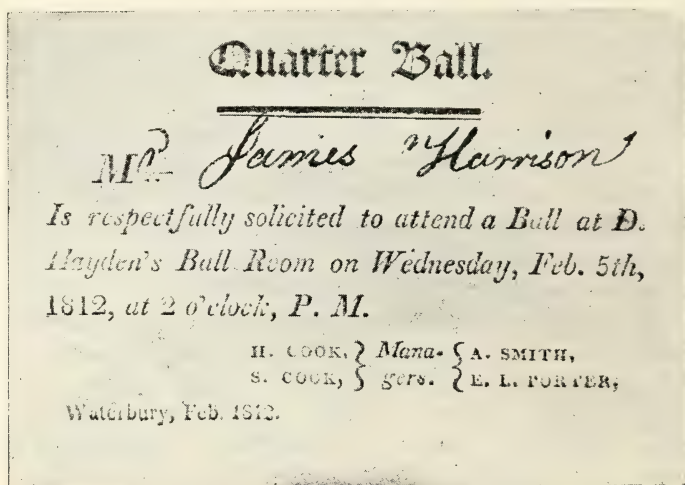 Quarter Ball.
Mr. James Harrison
Is respectfully solicited to attend a Ball at D.
Hayden's Ball Room on Wednesday, Feb. 5th,
1812, at 2 o'clock, P. M.
H. COOK, } Mana- { A. SMITH,
S. COOK, } gers. { E. L. PORTER,
Waterbury, Feb. 1812.